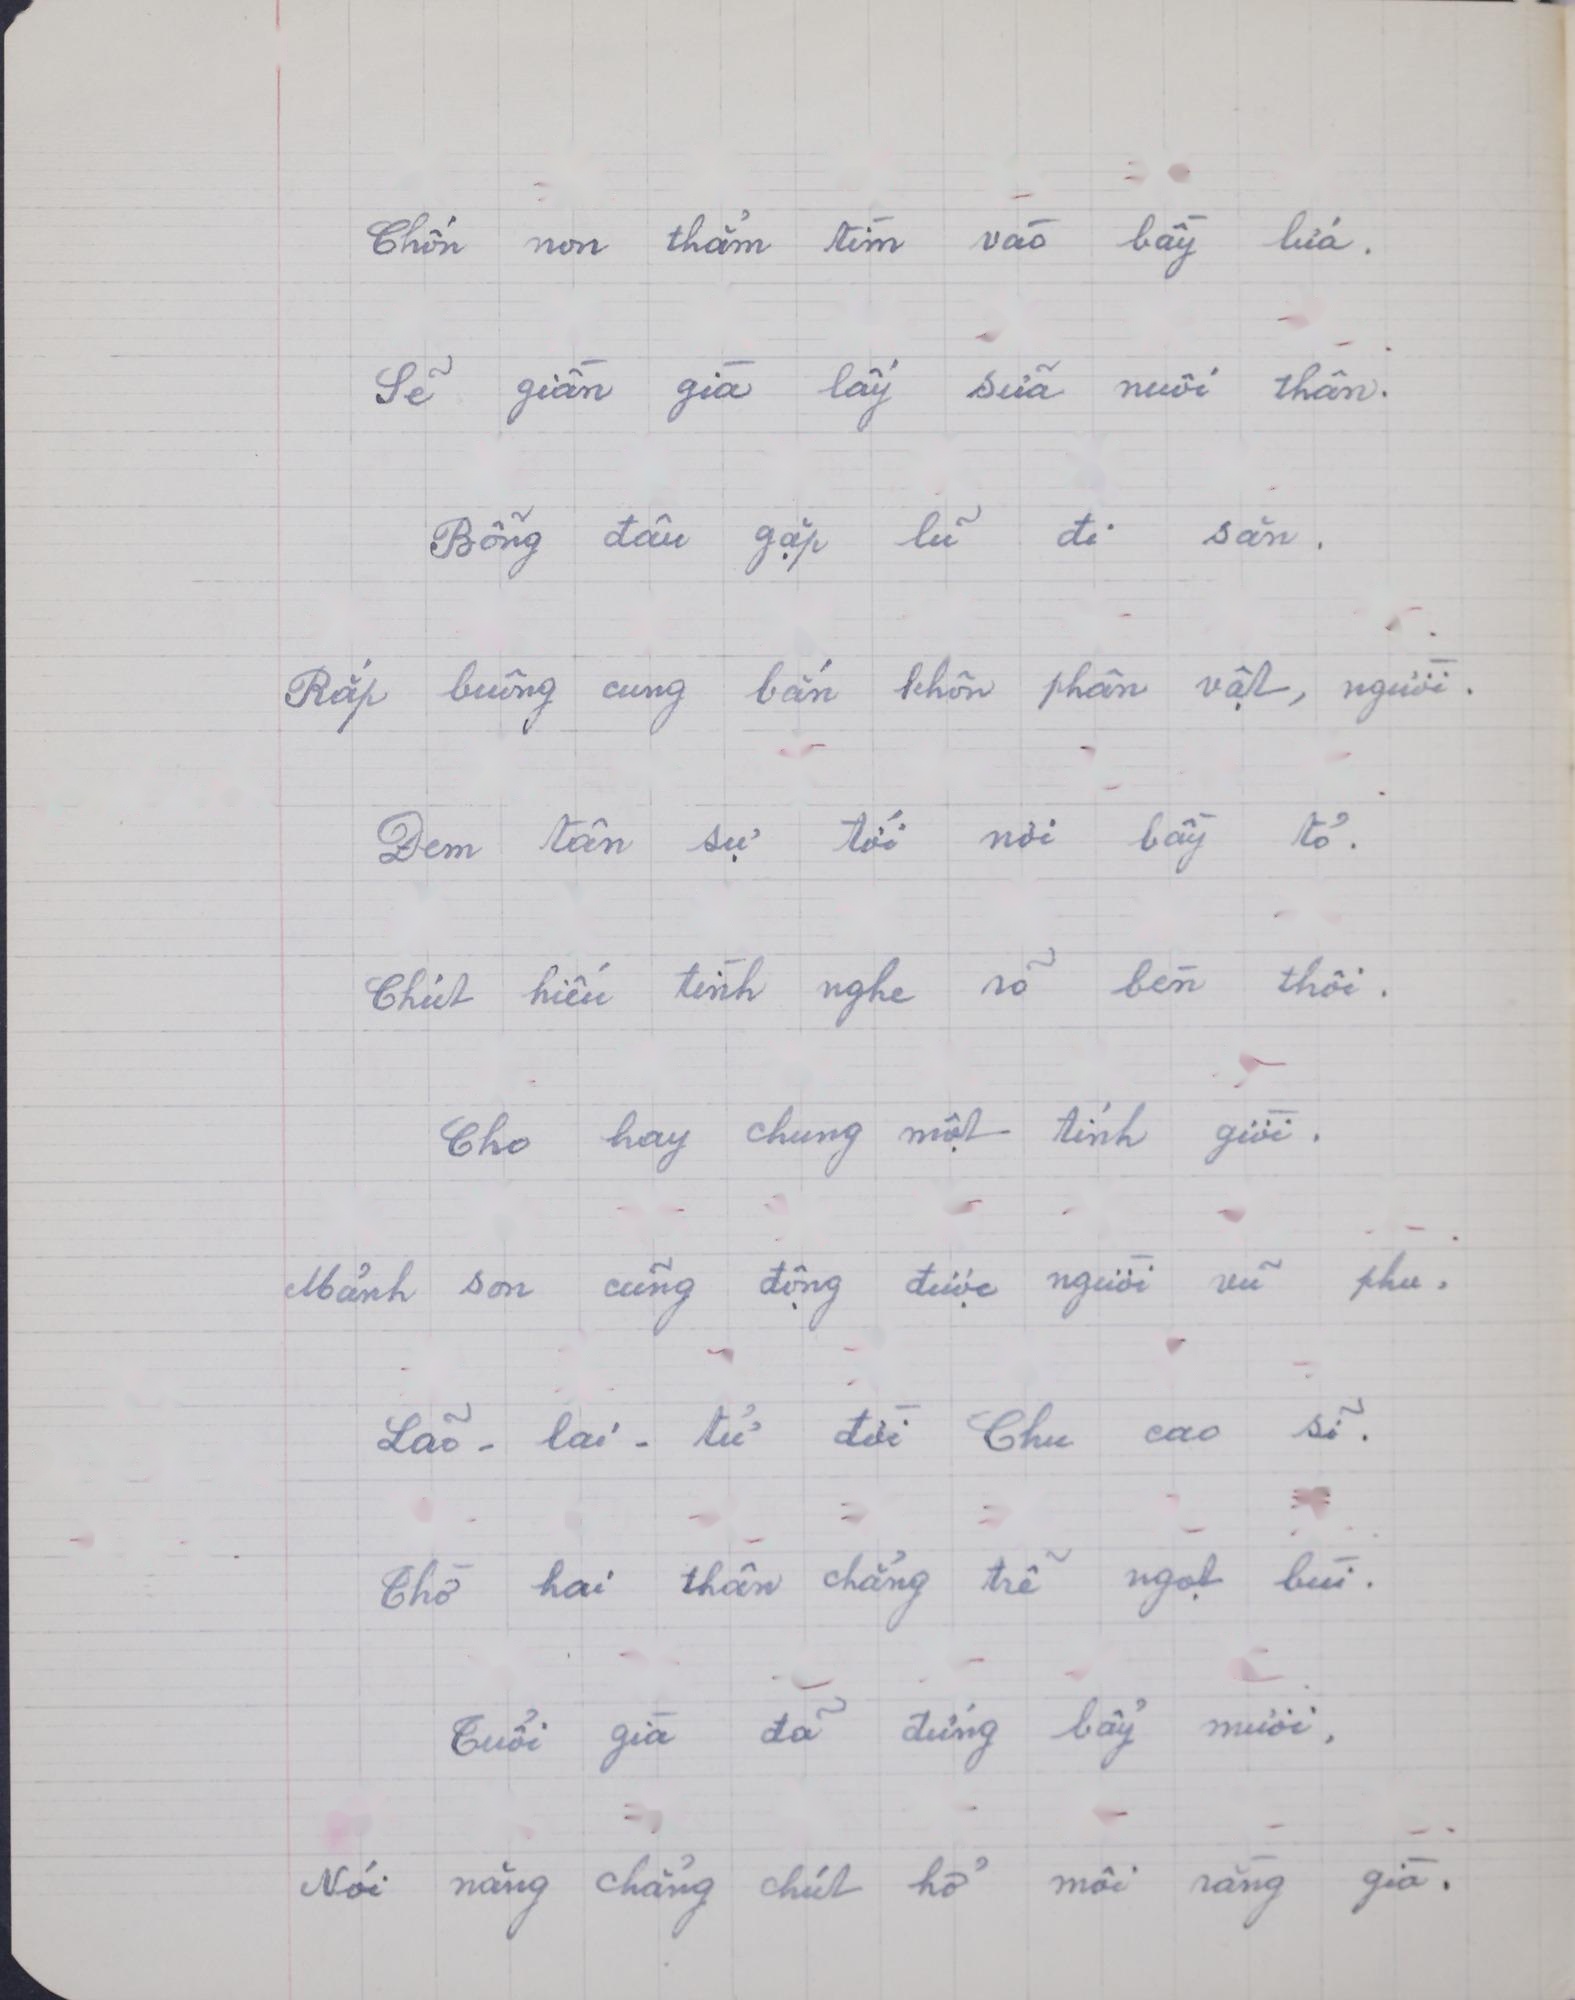 Chốn non thẳm tìm vào bầy lứa.
Sẽ giần già lấy sữa nuôi thân.
Bỗng đâu gặp lũ đi săn.
Rắp buông cung bắn khôn phân vật, người.
Đem tân sự tới nơi bầy tỏ.
Chút hiếu tình nghe rõ bèn thôi.
Cho hay chung một tính giời.
Mảnh son cũng động được người vũ phu.
Lão - lai - tử đời Chu cao sĩ.
Thờ hai thân chẳng trễ ngọt bùi.
Tuổi già đã đứng bẩy mươi,
Nói năng chẳng chút hở môi rằng già.